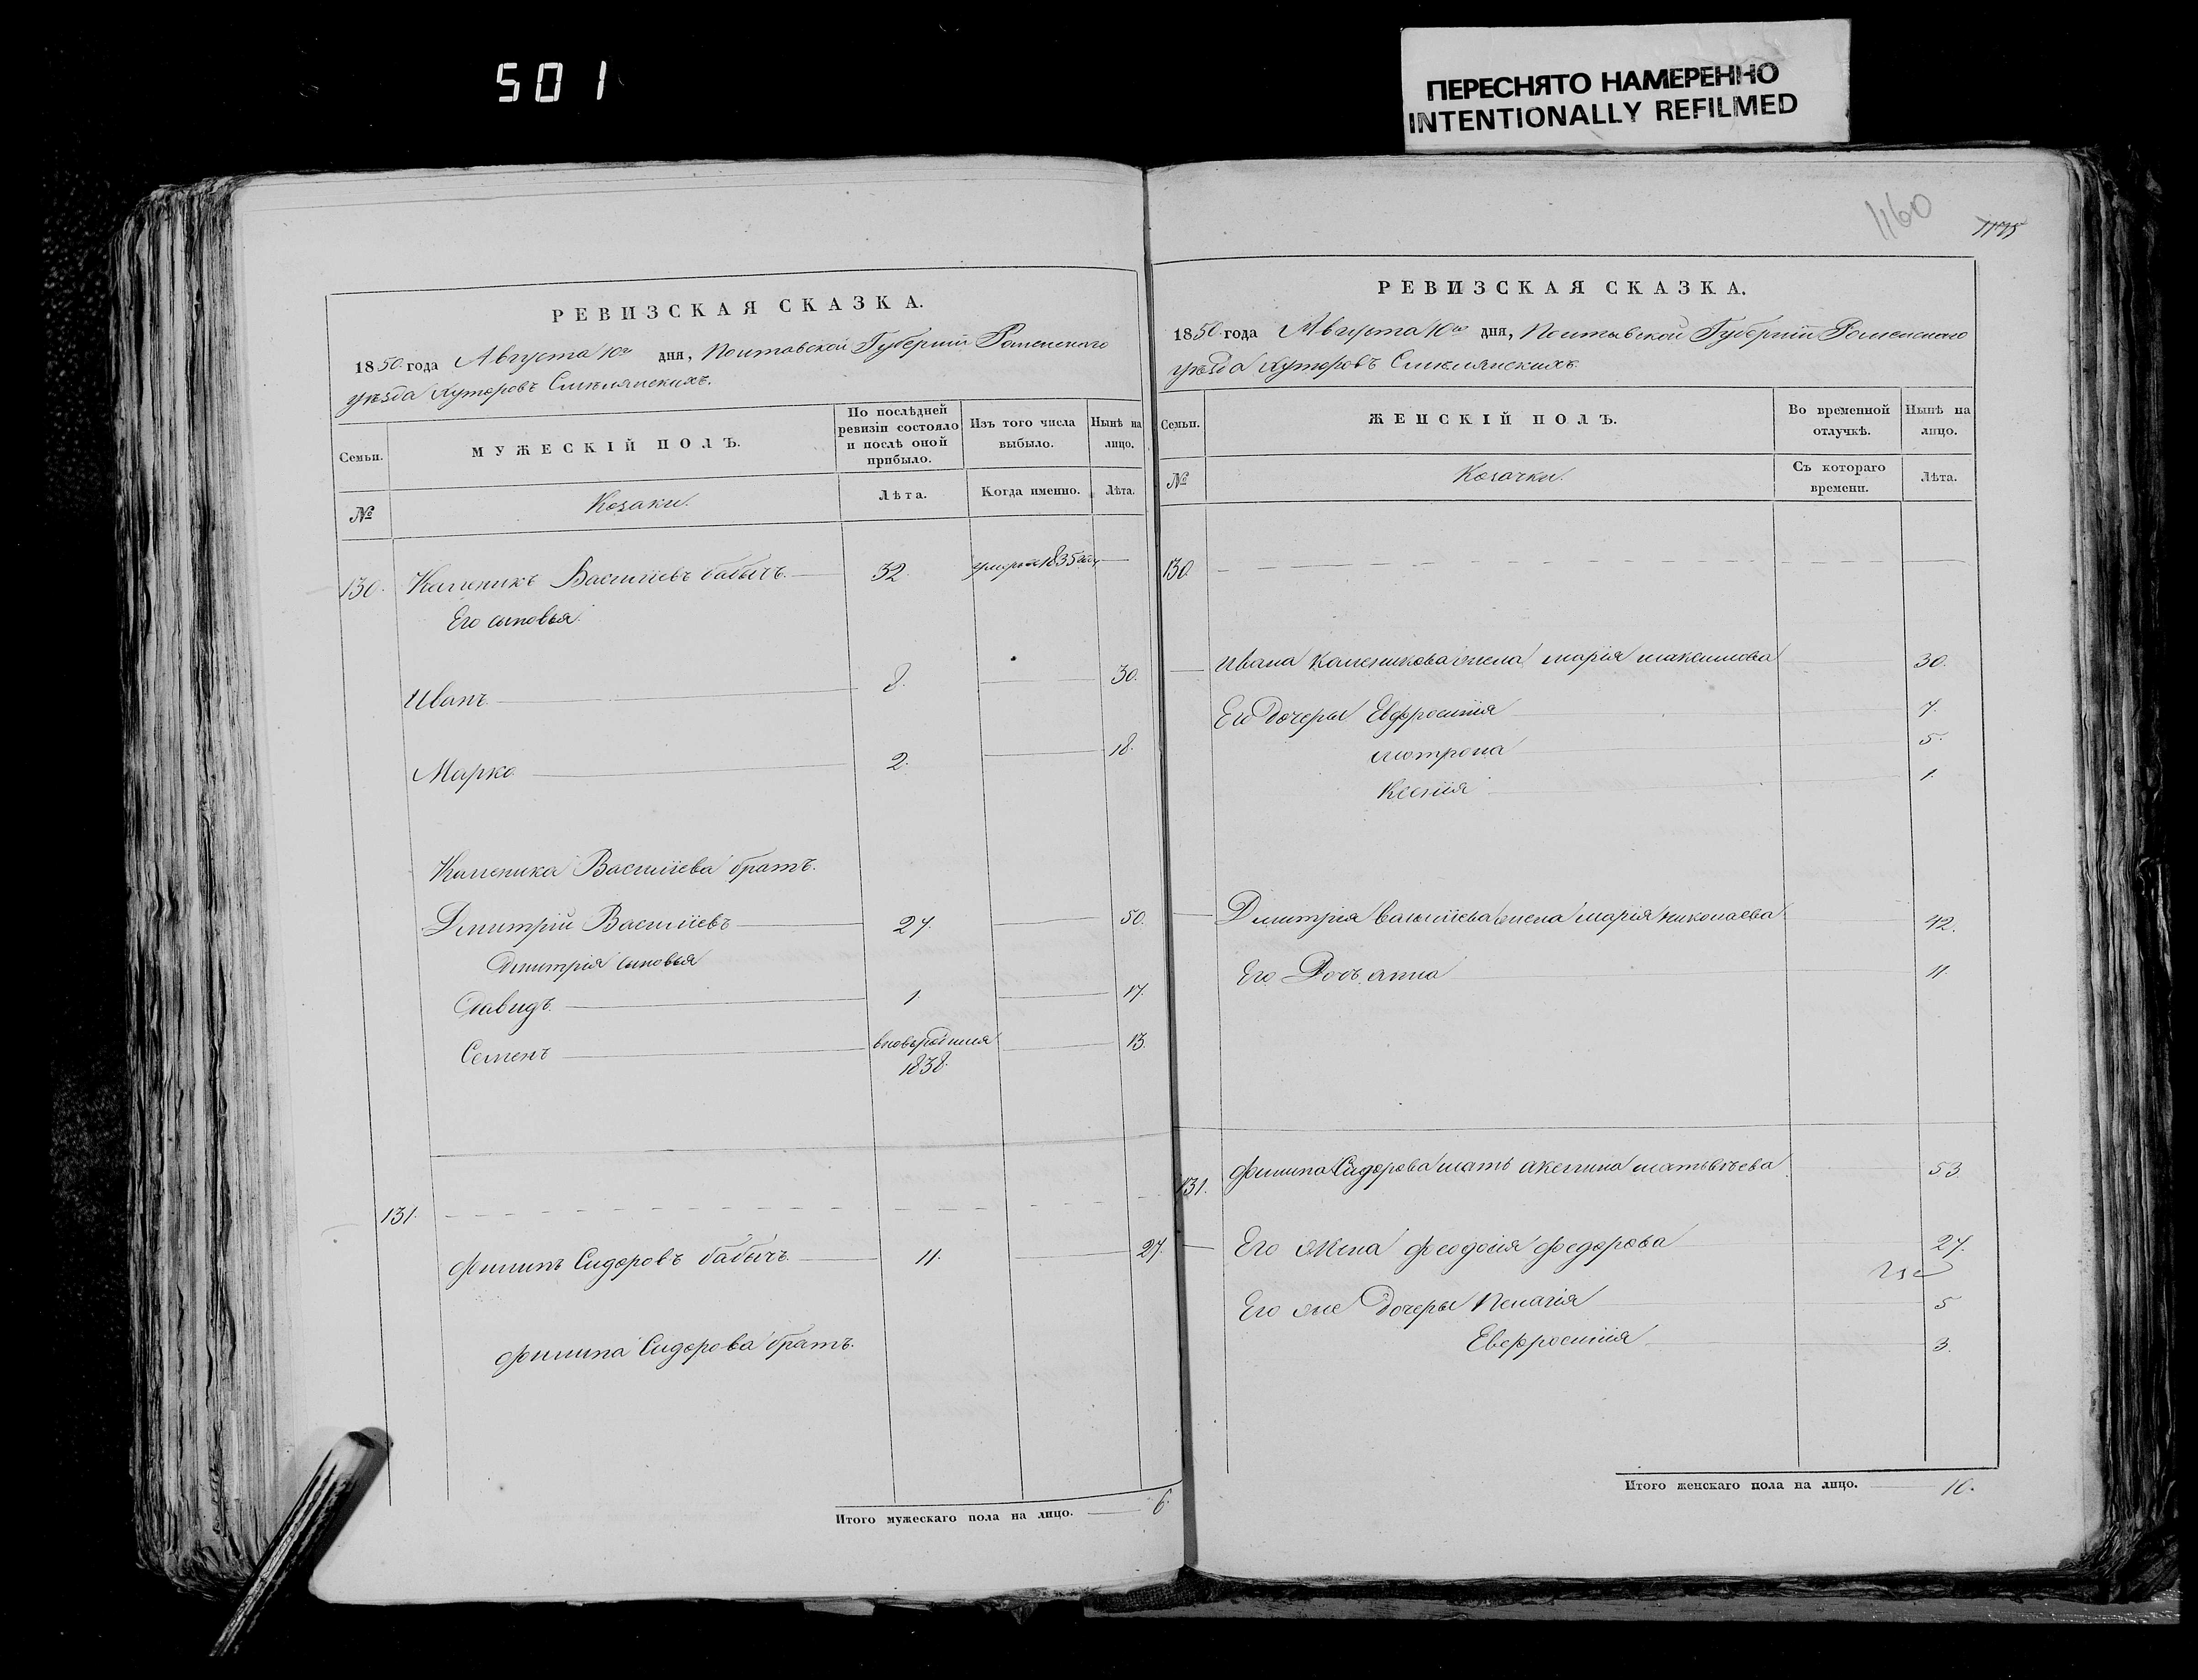 501
ПЕРЕСНЯТО НАМЕРЕННО
INTENTIONALLY REFILMED
РЕВИЗСКАЯ СКАЗКА.
1850 года Августа 10го дня, Полтавской Губерніи Роменского
уѣзда Хуторовъ Смѣлянскихъ.
Семьи.
МУЖЕСКІЙ ПОЛЪ.
По послѣдней ревизіи состояло и послѣ оной прибыло.
Изъ того числа выбыло.
Нынѣ на лицо.
№
Козаки.
Лѣта.
Когда именно.
Лѣта.
130. Каленикъ Василіевъ бабычъ. 32. умре 1835 году
Его сыновья.
Иванъ 8. 30.
Марко 2. 18.
Каленика Василіева братъ.
Дмитрій Василіевъ 27. 50.
Дмитрія сыновья
Давидъ. 1. 17.
Семенъ вновьродился 13.
1838.
131.
Филипъ Сидоровъ бабычъ. 11. 27.
Филипа Сидорова братъ.
Итого мужескаго пола на лицо. 6.
1160
РЕВИЗСКАЯ СКАЗКА.
1850 года Августа 10го дня, Полтавской Губерніи Роменского
уѣзда Хуторовъ Смѣлянскихъ.
Семьи.
ЖЕНСКІЙ ПОЛЪ.
Во временной отлучкѣ.
Нынѣ на лицо.
№
Козачки.
Съ котораго времени.
Лѣта.
130.
Ивана Каленикова жена марія максимова 30.
Его дочеры Евфросинія 7.
мотрона 5.
Ксенія 1.
Дмитрія Василіева жена марія николаева 42.
Его Дочь анна 11.
131. Филипа Сидорова мать акелина матьвѣева 53.
Его жена феодосія федорова 27.
Его же дочеры Пелагія 5
Евфросинія 3.
Итого женскаго пола на лицо. 10.